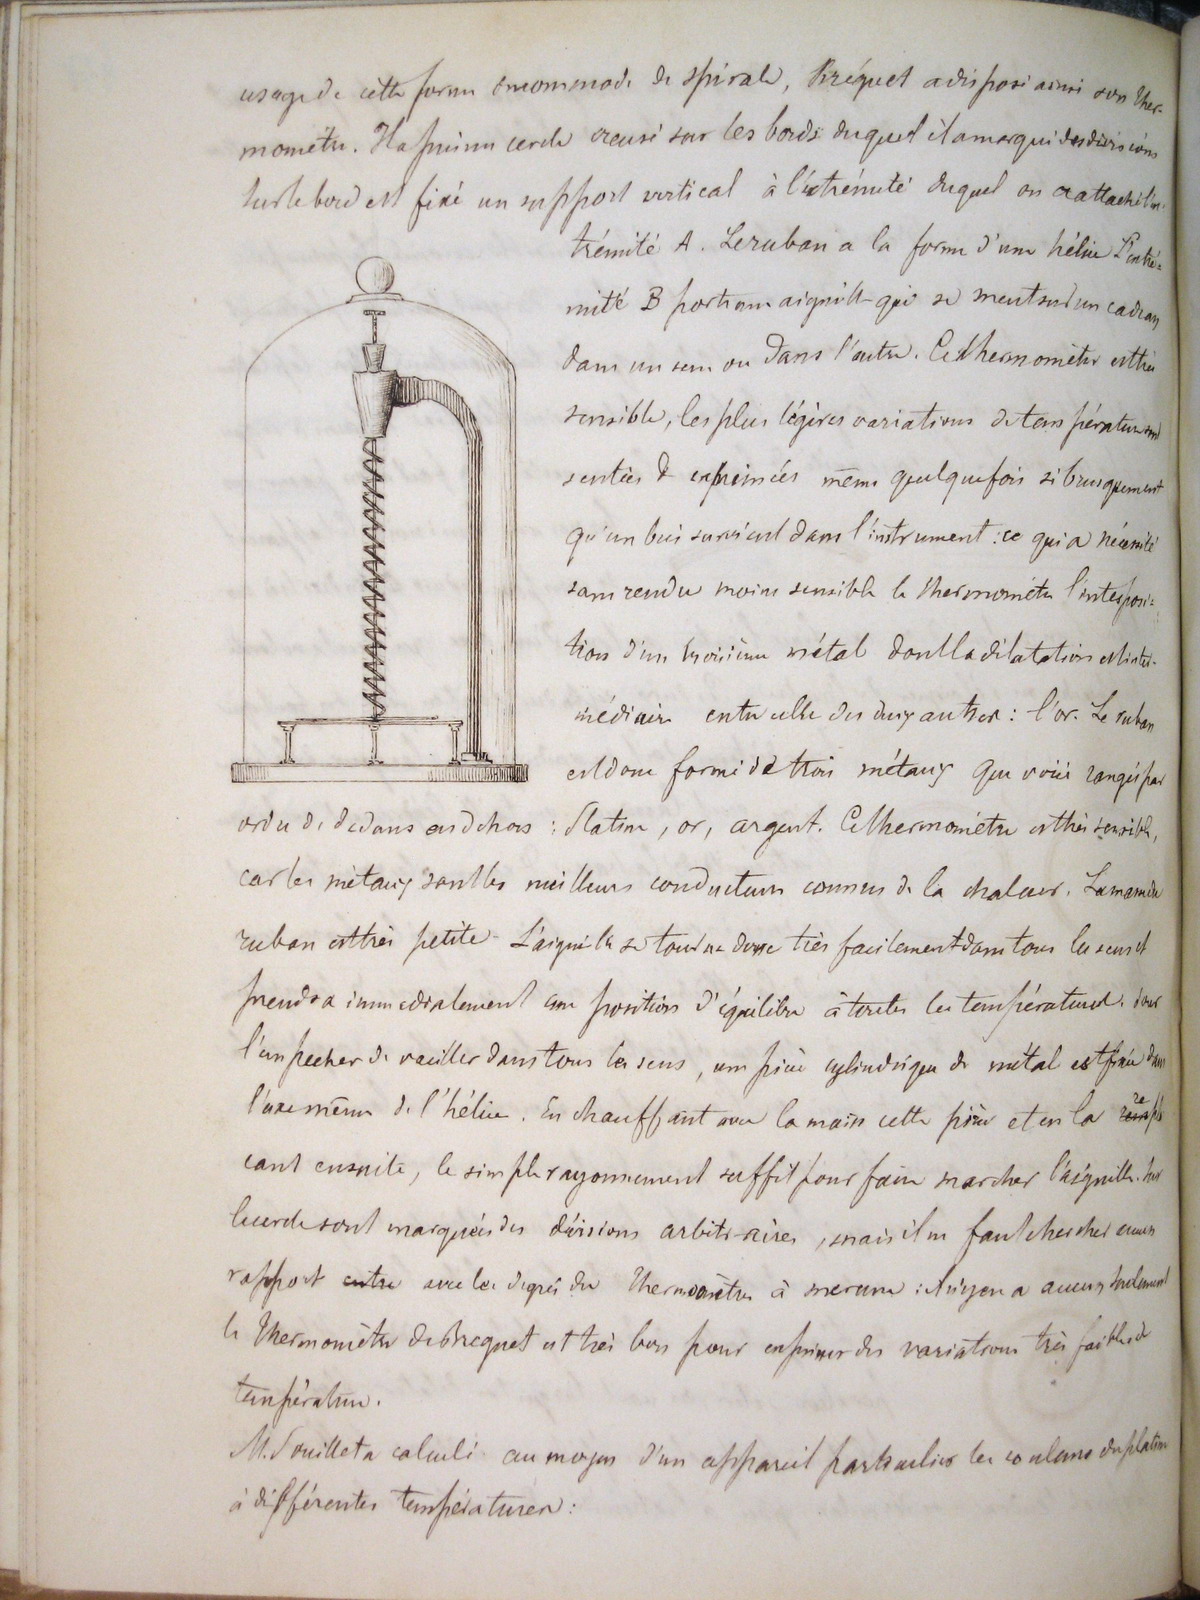 usage de cette forme incommode de spirale, Bréguet a disposé ainsi son ther-
momètre. Il a pris un cercle creusé sur les bords duquel il a marqué des divisions
sur le bord est fixé un support vertical à l'extrémité duquel on a attaché l'ex-
trémité A. Le ruban a la forme d'une hélice L'extré-
mité B porte une aiguille qui se meut sur un cadran
dans un sens ou dans l'autre. Ce thermomètre est très
sensible, les plus légères variations de température sont
senties & exprimées même quelquefois si brusquement
qu'un bris survient dans l'instrument : ce qui a nécessité
sans rendre moins sensible le thermomètre l'interposi-
tion d'un troisième métal dont la dilatation est inter-
médiaire entre celle des deux autres : l'or. Le ruban
est donc formé de trois métaux que voici rangés par
ordre de dedans en dehors : Platine, or, argent. Ce thermomètre est très sensible,
car les métaux sont les meilleurs conducteurs connus de la chaleur. La masse du
ruban est très petite. L'aiguille se tourne donc très facilement dans tous les sens et
prendra immédiatement une position d'équilibre à toutes les températures. Pour
l'empecher de vaciller dans tous les sens, une pièce cylindrique de métal est fixée dans
l'axe même de l'hélice. En chauffant avec la main cette pièce et en la repla
cant ensuite, le simple rayonnement suffit pour faire marcher l'aiguille. Sur
le cercle sont marquées des divisions arbitraires, mais il ne faut chercher aucun
rapport entre avec les degrés du thermomètre à mercure : il n'y en a aucun seulement
le thermomètre de Breguet est très bon pour exprimer des variations très faibles de
température.
M. Pouillet a calculé au moyen d'un appareil particulier les couleurs du platine
à différentes températures :